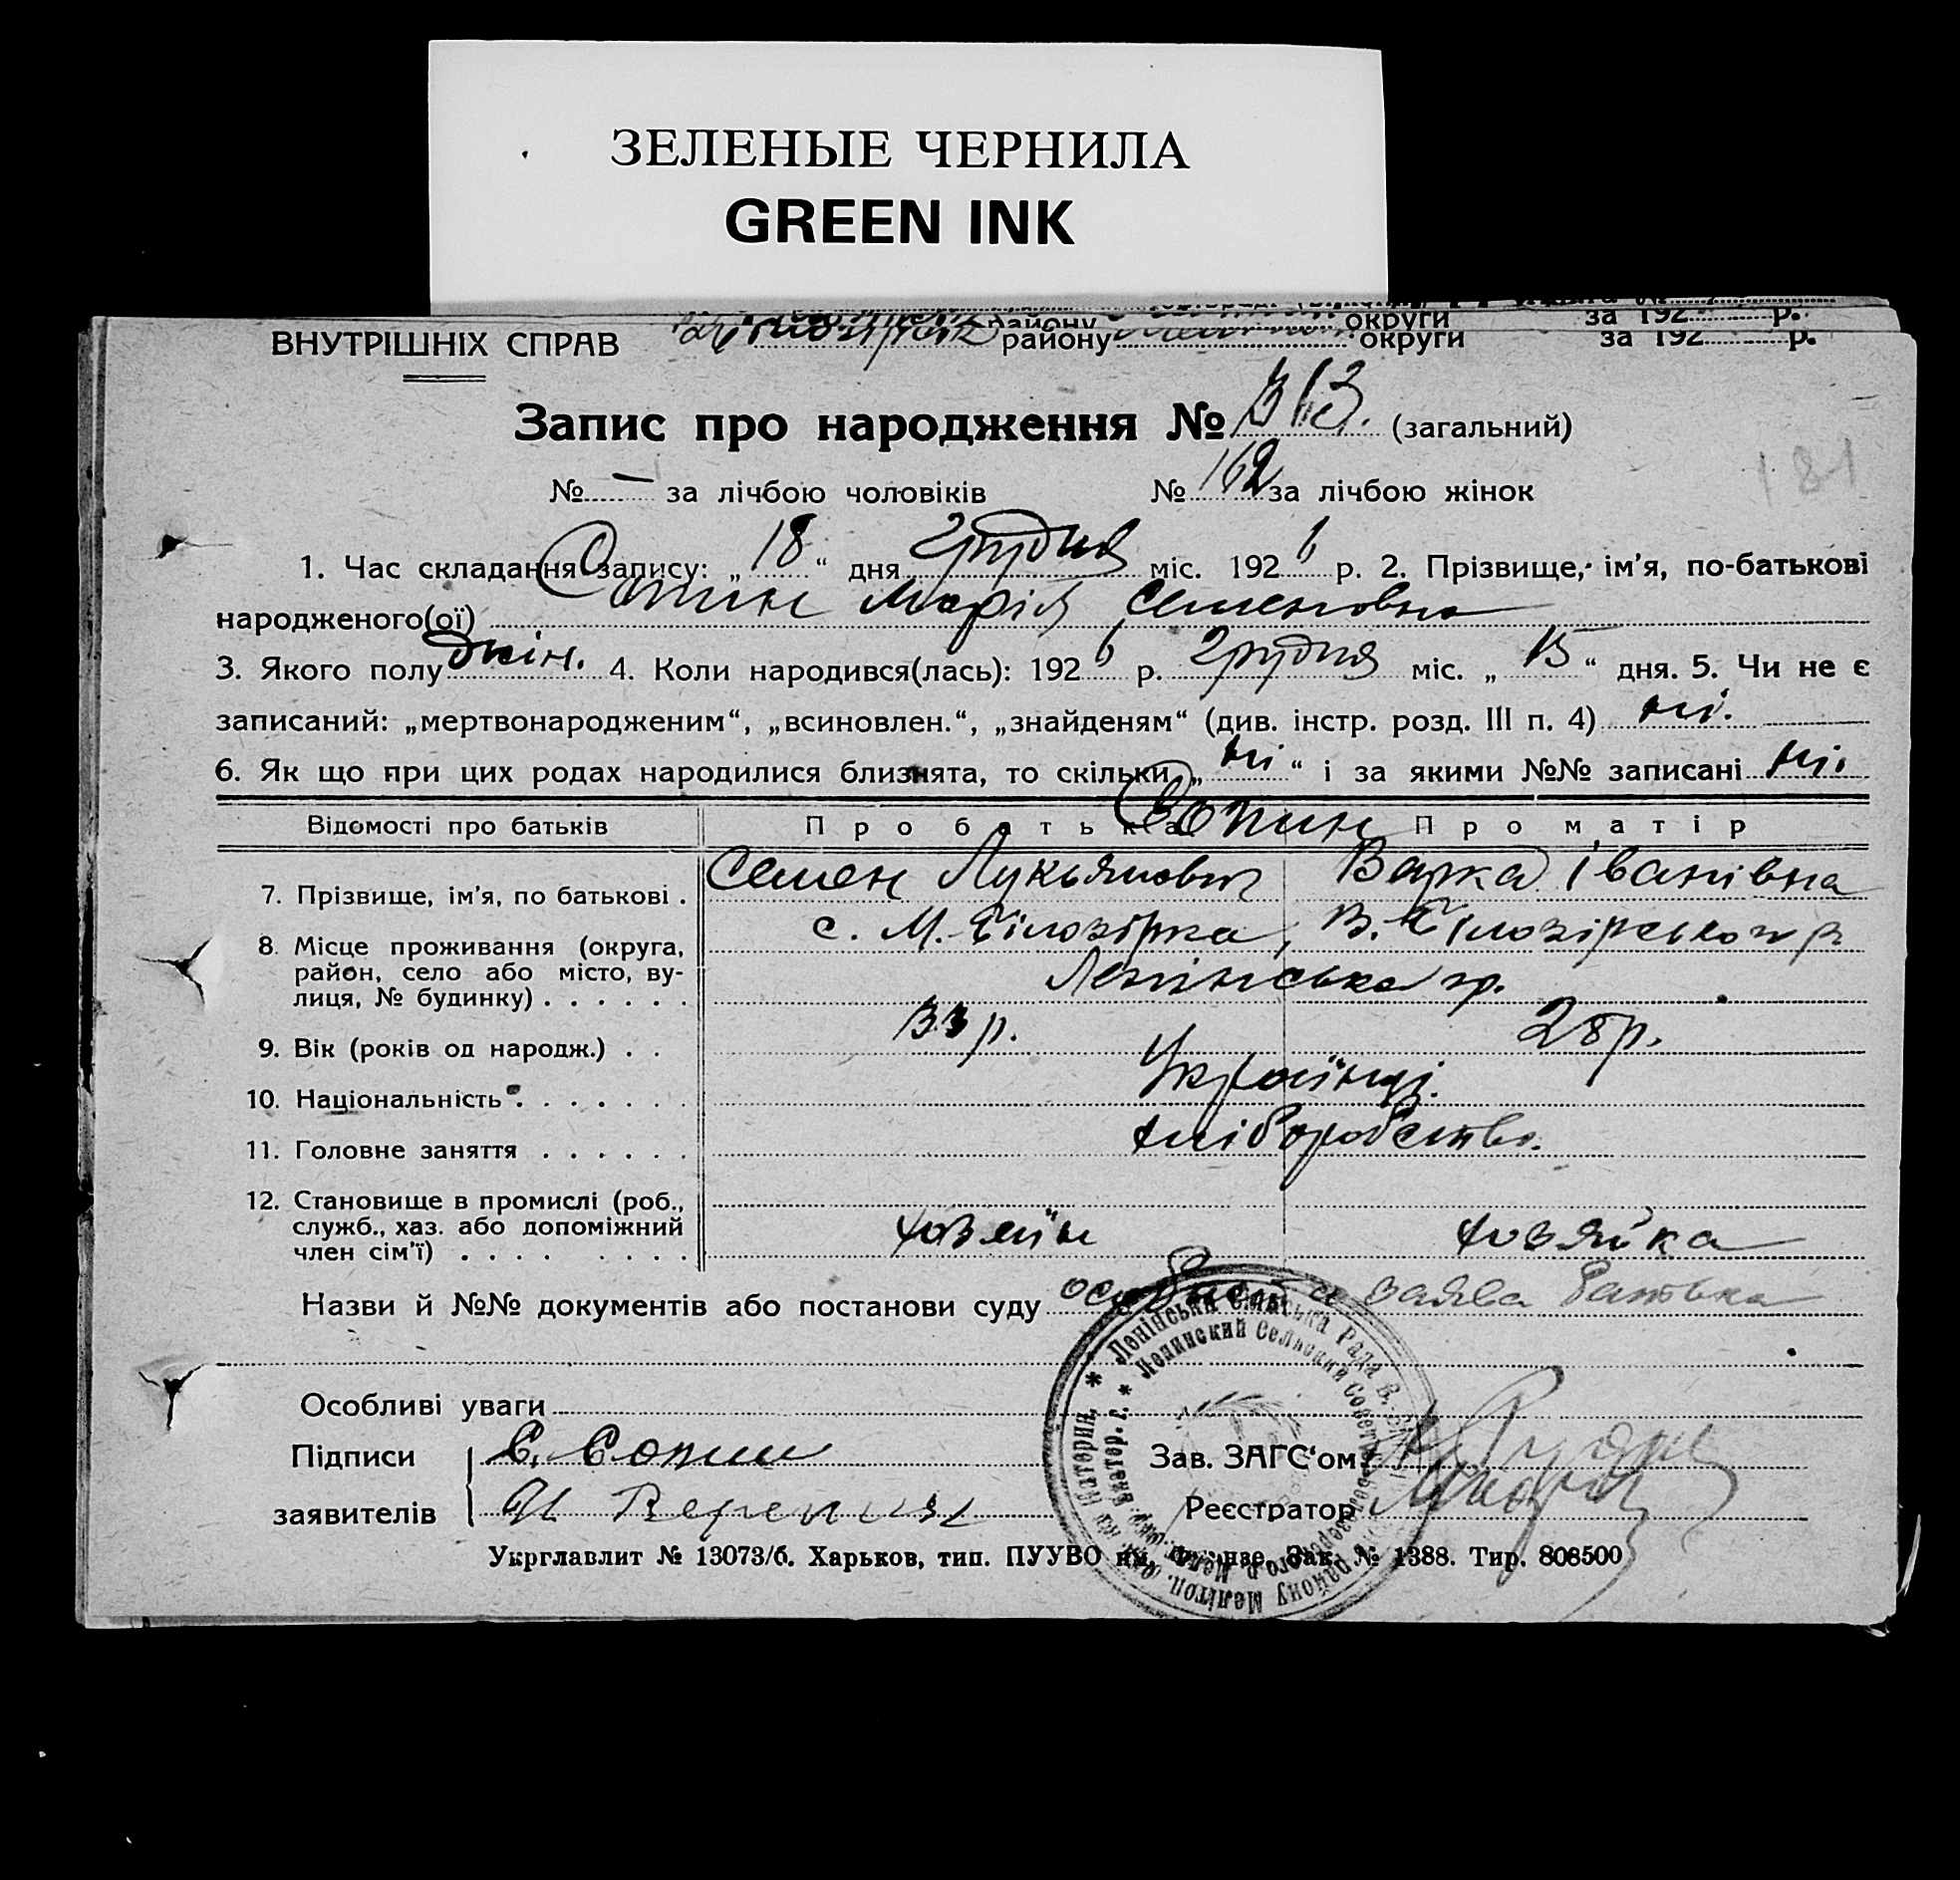 ЗЕЛЕНЫЕ ЧЕРНИЛА
GREEN INK
району округи за 192 р.
ВНУТРІШНІХ СПРАВ району округи за 192 р.
Запис про народження № 313. (загальний)
№ — за лічбою чоловіків № 162 за лічбою жінок
181
1. Час складання запису: „18“ дня Грудня міс. 1926 р. 2. Прізвище, ім’я, по-батькові
народженого(ої) Сопин Марія Семеновна
3. Якого полу жін. 4. Коли народився(лась): 1926 р. Грудня міс. „15“ дня. 5. Чи не є
записаний: „мертвонародженим“, „всиновлен.“, „знайденям“ (див. інстр. розд. III п. 4) ні.
6. Як що при цих родах народилися близнята, то скільки „ні“ і за якими №№ записані ні.
Відомості про батьків Про батька Про матір
Сопин
7. Прізвище, ім’я, по батькові . Семен Лукьянович Варка Іванівна
8. Місце проживання (округа, с. М. Білозірка, В. Білозірського р
район, село або місто, ву- Ленінська
лиця, № будинку) . . . . . .
9. Вік (років од народж.) . . 33 р. 28 р.
10. Національність . . . . . . . Українці.
11. Головне заняття . . . . . . хліборобство.
12. Становище в промислі (роб.,
служб., хаз. або допоміжний хозяїн хозяйка
член сім’ї) . . . . . . . .
Назви й №№ документів або постанови суду особиста заява батька
Особливі уваги
Підписи С. Сопин Зав. ЗАГС‘ом
заявителів Реєстратор
Укрглавлит № 13073/б. Харьков, тип. ПУУВО Зак. № 1388. Тир. 808500
Ленінська Сільська Рада В. району Мелітоп. окр. на Катерин.
Ленинский Сельский Совет